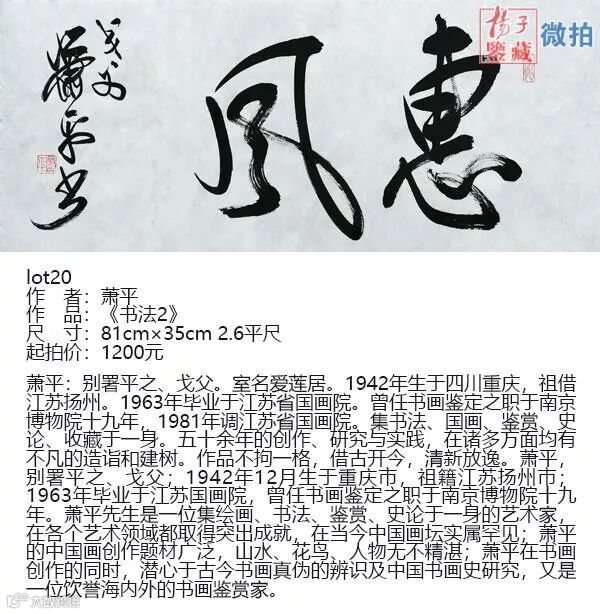 惠风
戈父
萧平书
杨子
鉴藏
微拍
lot20
作　者：萧平
作　品：《书法2》
尺　寸：81cm×35cm 2.6平尺
起拍价：1200元
萧平：别署平之、戈父。室名爱莲居。1942年生于四川重庆，祖借
江苏扬州。1963年毕业于江苏省国画院。曾任书画鉴定之职于南京
博物院十九年，1981年调江苏省国画院。集书法、国画、鉴赏、史
论、收藏于一身。五十余年的创作、研究与实践，在诸多方面均有
不凡的造诣和建树。作品不拘一格，借古开今，清新放逸。萧平，
别署平之、戈父；1942年12月生于重庆市，祖籍江苏扬州市；
1963年毕业于江苏国画院，曾任书画鉴定之职于南京博物院十九
年。萧平先生是一位集绘画、书法、鉴赏、史论于一身的艺术家，
在各个艺术领域都取得突出成就，在当今中国画坛实属罕见；萧平
的中国画创作题材广泛，山水、花鸟、人物无不精湛；萧平在书画
创作的同时，潜心于古今书画真伪的辨识及中国书画史研究，又是
一位饮誉海内外的书画鉴赏家。